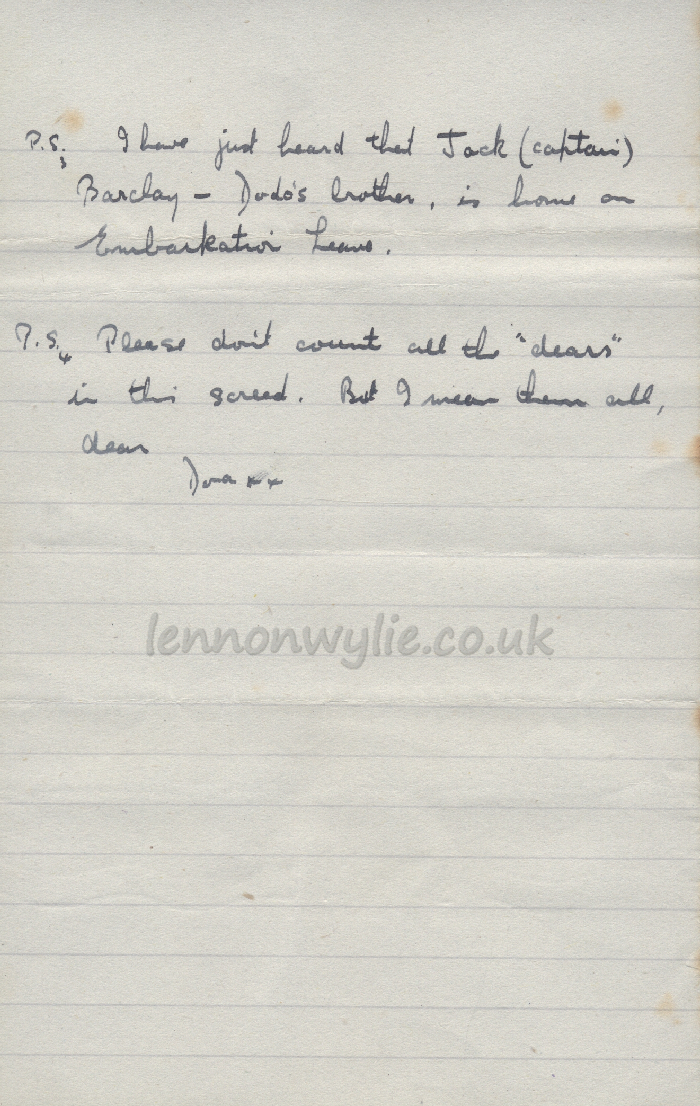 P.S.3 I have just heard that Jack (captain)
Barclay - Dodo's brother, is home on
Embarkation Leave.
P.S.4 Please don't count all the "dears"
in this screed. But I mean them all,
dear
xx
lennonwylie.co.uk